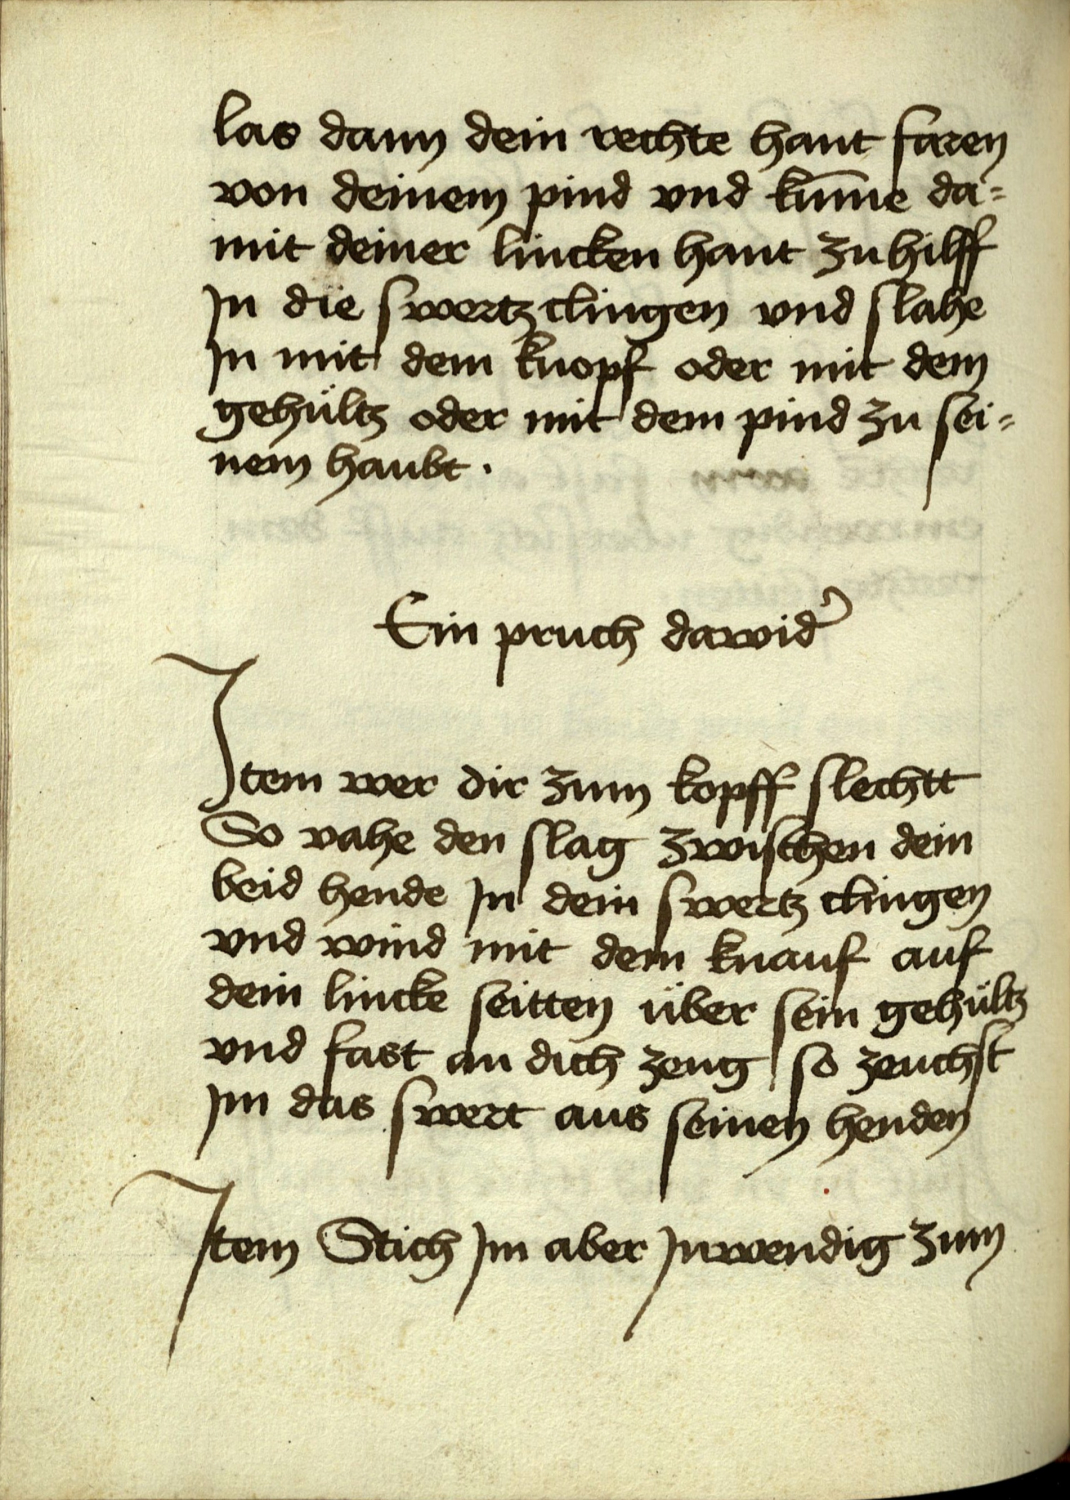 las dann dein rechte hant faren
von deinem pind vnd ku̅me da=
mit deiner lincken hant zu hilff
Jn die swertz clingen vnd slahe
Jn mit dem knopf oder mit dem
gehültz oder mit dem pind zu sei=
nem haubt .
Ein pruch dawid᾿
Jtem wer dir zum kopff slechtt
So vahe den slag zwischen dein
beid hende Jn dein swertz clingen
vnd wind mit dem knauf auf
dein lincke seitten über sein gehültz
vnd fast an dich zeug so zeuchst
Jm das swert aus seinen henden
Jtem Stich Jm aber Jnwendig zum